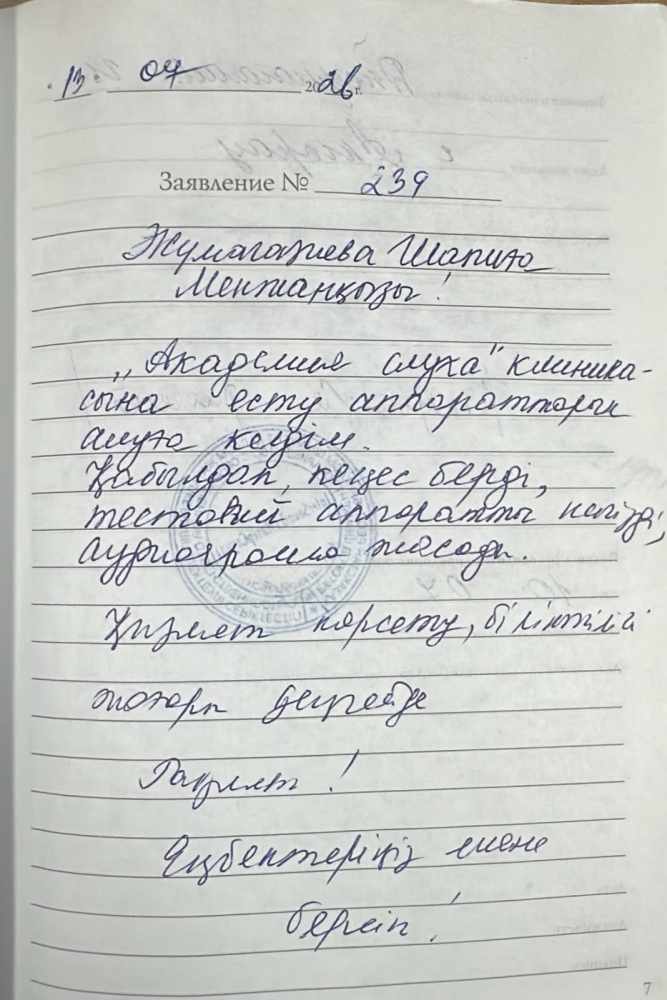 13 04 2026 г.
Заявление № 239
Жумагазиева Шапиға
Менжанқызы!
„Академия слуха" клиника-
сына есту аппараттарын
алуға келдім.
Қабылдап, кеңес берді,
тестовый аппаратты кигізді,
аудиограмма жасады.
Қызмет көрсету, біліктілігі
жоғары деңгейде
Рахмет!
Еңбектеріңіз жене
берсін!
7